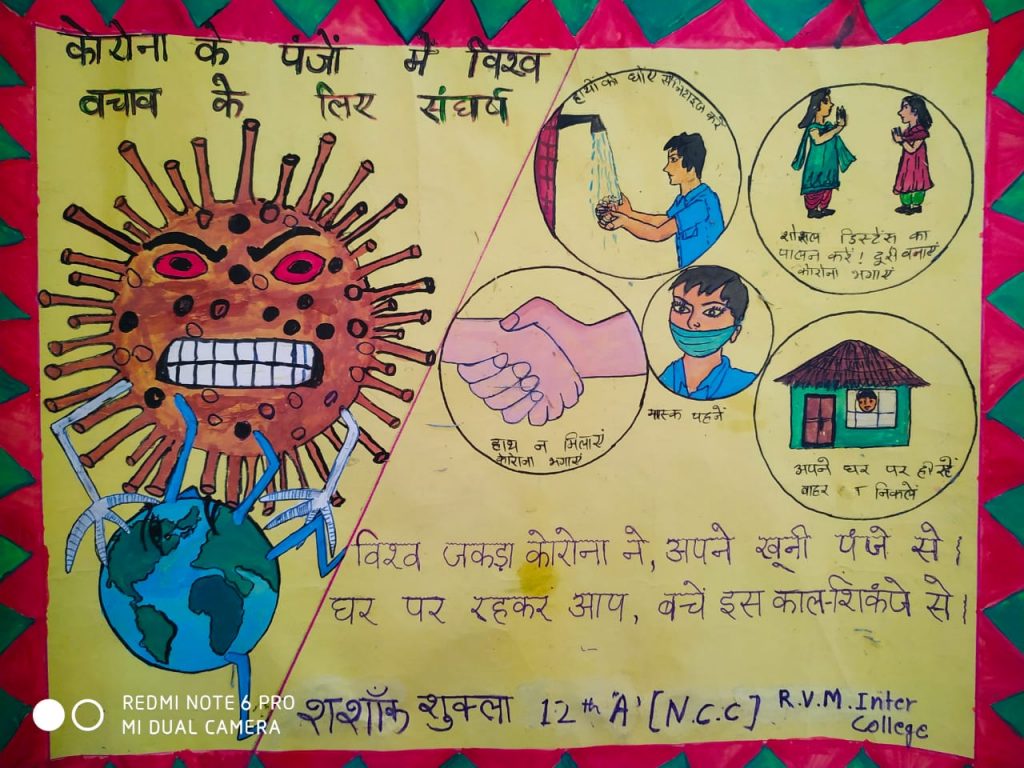 कोरोना के पंजों में विश्व
वचाव के लिए संघर्ष
हाथों को धोएं सेनिटाइज करें
शोसल डिस्टेंस का
पालन करें! दूरी बनाएं
कोरोना भगाएं
हाथ न मिलाएं
कोरोना भगाएं
मास्क पहनें
अपने घर पर ही रहें
बाहर न निकलें
विश्व जकड़ा कोरोना ने, अपने खूनी पंजे से।
घर पर रहकर आप, बचें इस काल-शिकंजे से।
शशाँक शुक्ला 12th 'A' [N.C.C] R.V.M. Inter
College
REDMI NOTE 6 PRO
MI DUAL CAMERA